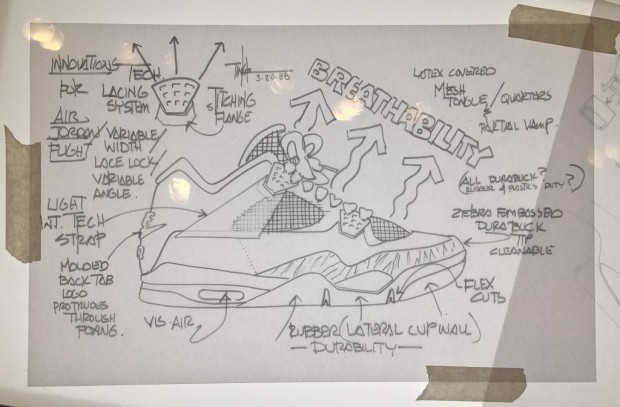 INNOVATIONS
FOR
AIR
JORDAN
FLIGHT
TECH
LACING
SYSTEM
VARIABLE
WIDTH
LACE LOCK/
VARIABLE
ANGLE.
TINK
3-20-88
STICHING
FLANGE
BREATHABILITY
LATEX COVERED
MESH
TONGUE/QUARTERS
VAMP.
(ALL DURABUCK?
DUTY?)
ZEBRA EMBOSSED
DURABUCK
TIP
CLEANABLE
LIGHT
WT. TECH
STRAP
MOLDED
BACKTAB
LOGO
PROTRUDES
THROUGH
VIS-AIR
FLEX
CUTS
RUBBER (LATERAL CUPWALL)
—DURABILITY—